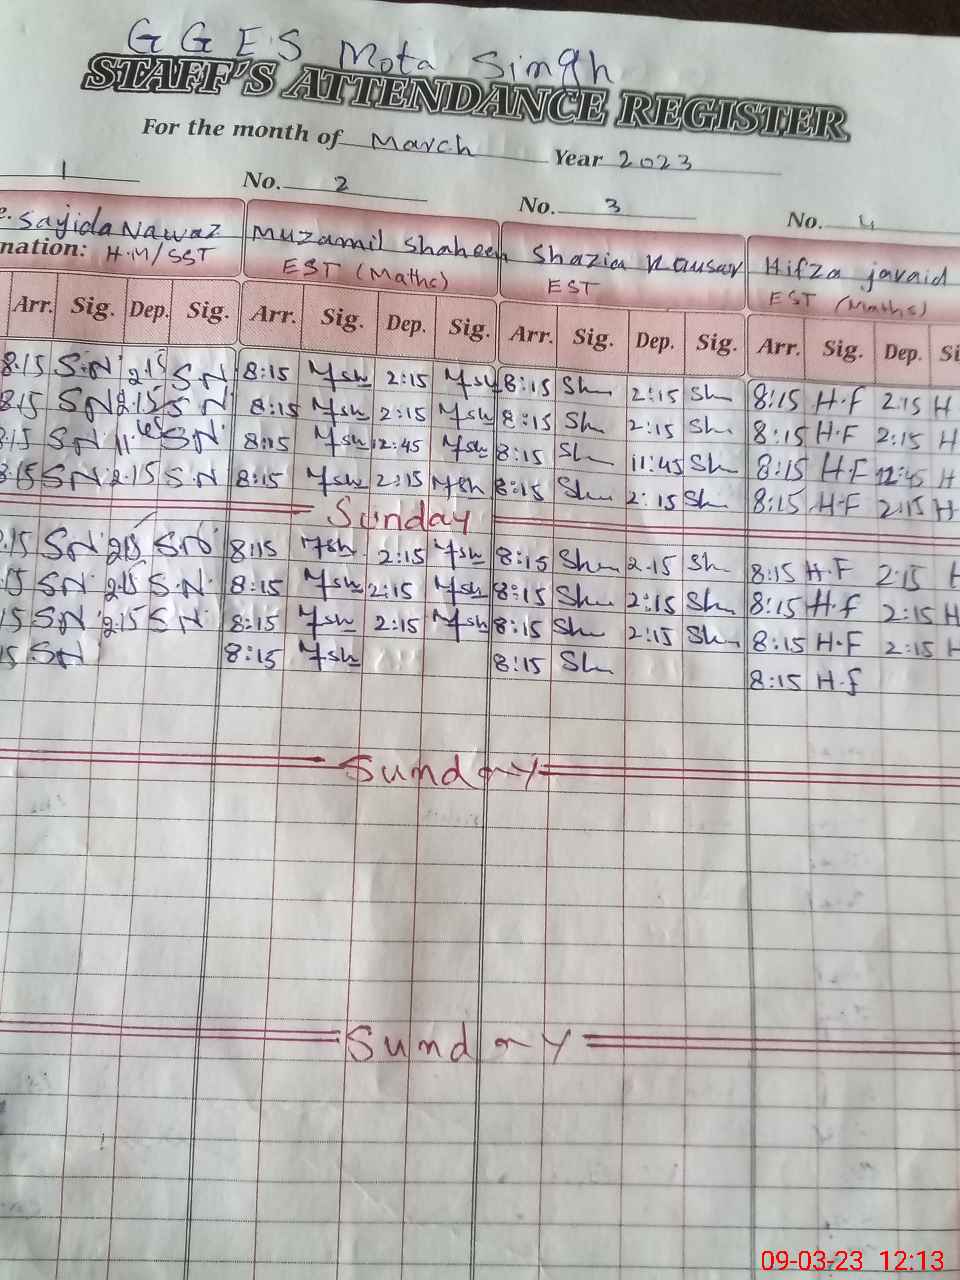 G G E S Mota Singh
STAFF'S ATTENDANCE REGISTER
For the month of March Year 2023
1 No. 2 No. 3 No. 4
e. Sajida Nawaz Muzamil Shaheen Shazia Kousar Hifza javaid
nation: H.M/SST EST (Maths) EST EST (Maths)
Arr. Sig. Dep. Sig. Arr. Sig. Dep. Sig. Arr. Sig. Dep. Sig. Arr. Sig. Dep. Si
8:15 S.N 2:15 S.N 8:15 Msh 2:15 Msh 8:15 Sh 2:15 Sh 8:15 H.F 2:15 H
8:15 SN 2:15 S.N 8:15 Msh 2:15 Msh 8:15 Sh 2:15 Sh 8:15 H.F 2:15 H
8:15 SN 11:45 SN 8:15 Msh 12:45 Msh 8:15 Sh 11:45 Sh 8:15 H.F 12:45 H
8:15 SN 2:15 S.N 8:15 Msh 2:15 Msh 8:15 Sh 2:15 Sh 8:15 H.F 2:15 H
Sunday
:15 SN 2:15 SN 8:15 Msh 2:15 Msh 8:15 Sh 2:15 Sh 8:15 H.F 2:15 H
:15 SN 2:15 S.N 8:15 Msh 2:15 Msh 8:15 Sh 2:15 Sh 8:15 H.f 2:15 H
15 SN 2:15 S.N 8:15 Msh 2:15 Msh 8:15 Sh 2:15 Sh 8:15 H.F 2:15 H
15 SN 8:15 Msh 8:15 Sh 8:15 H.f
Sunday
Sunday
09-03-23 12:13